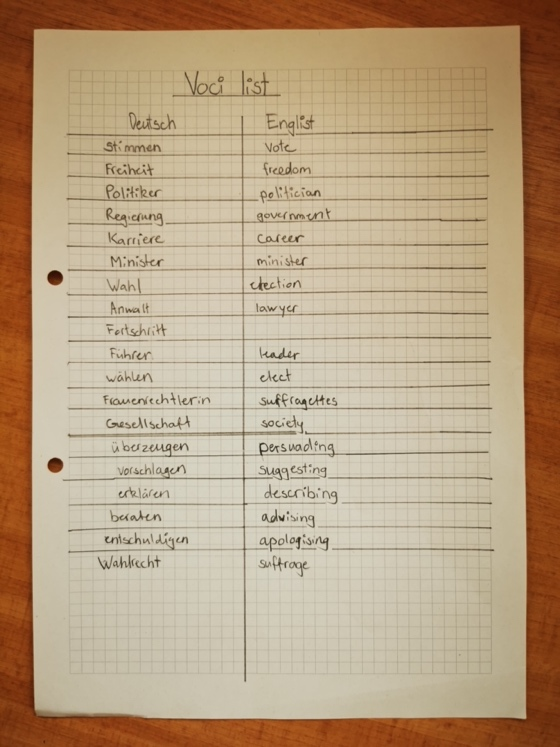 Voci list
Deutsch Englist
stimmen vote
Freiheit freedom
Politiker politician
Regierung government
Karriere career
Minister minister
Wahl election
Anwalt lawyer
Fortschritt
Führer leader
wählen elect
Frauenrechtlerin suffragettes
Gesellschaft society
überzeugen persuading
vorschlagen suggesting
erklären describing
beraten advising
entschuldigen apologising
Wahlrecht suffrage